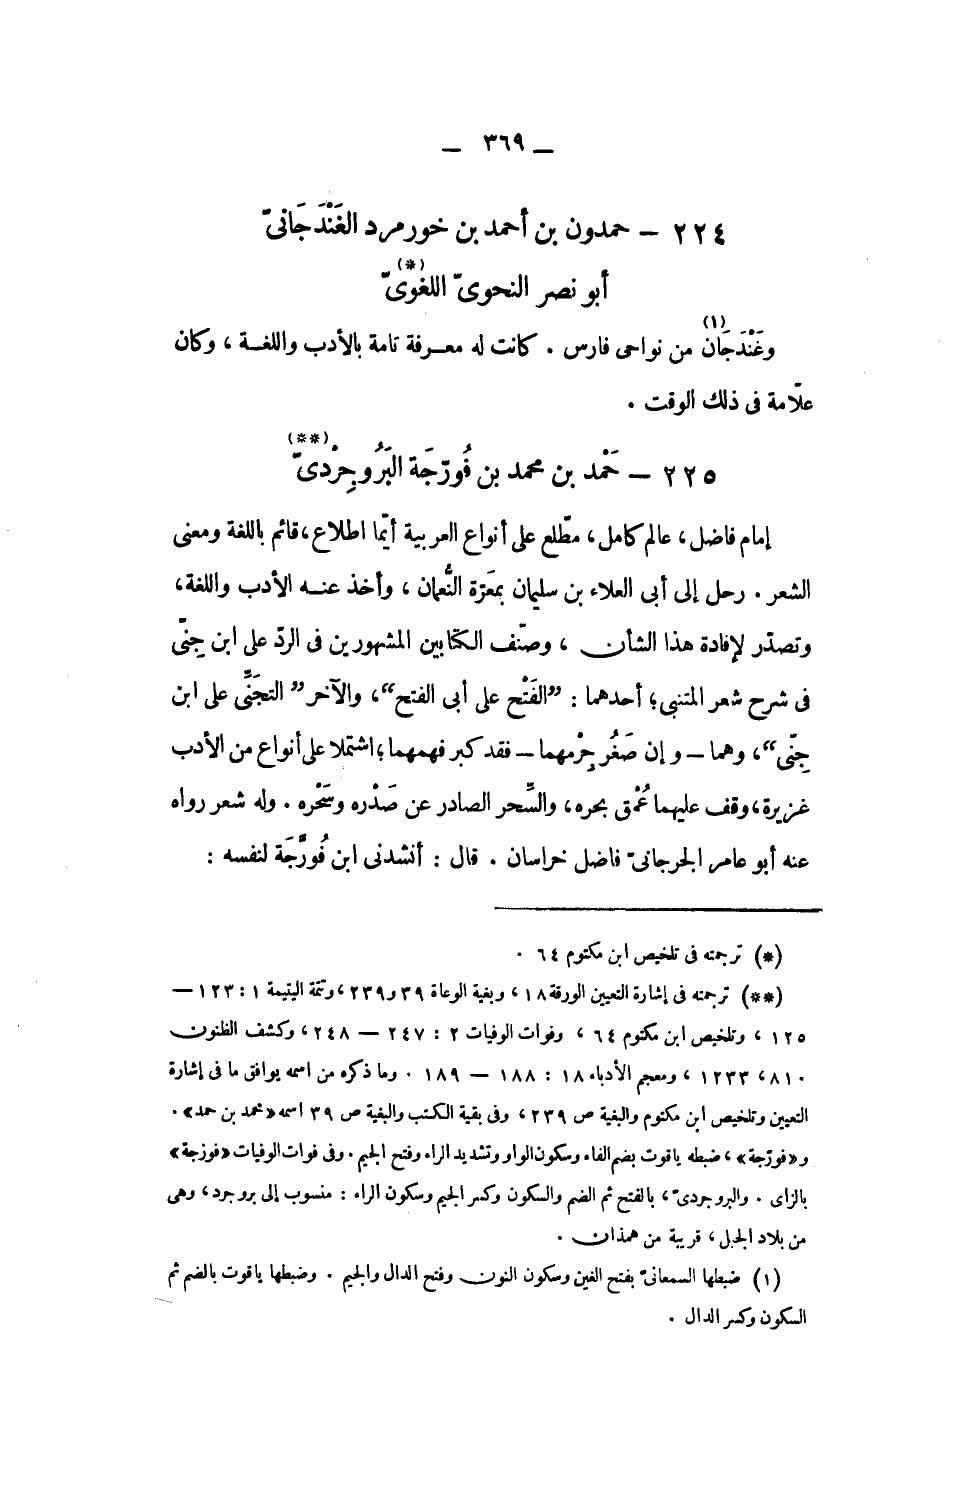 — ٣٦٩ —
٢٢٤ — حمدون بن أحمد بن خورمرد الغَنْدَجَانىّ
أبو نصر النحوىّ اللغوىّ (*)
وغَنْدَجَان (١) من نواحى فارس . كانت له معرفة تامة بالأدب واللغة ، وكان
علّامة فى ذلك الوقت .
٢٢٥ — حَمْد بن محمد بن فُورّجَة البَرُوجِرْدىّ (**)
إمام فاضل، عالم كامل، مطّلع على أنواع العربية أيّما اطلاع، قائم باللغة ومعنى
الشعر . رحل إلى أبى العلاء بن سليمان بمعَرّة النُّعمان ، وأخذ عنه الأدب واللغة،
وتصدّر لإفادة هذا الشأن ، وصنّف الكتابين المشهورين فى الردّ على ابن جِنّى
فى شرح شعر المتنبى؛ أحدهما : ”الفَتْح على أبى الفتح“، والآخر ”التجَنِّى على ابن
جِنّى“، وهما — وإن صَغُر جِرْمهما — فقد كبر فهمهما؛ اشتملا على أنواع من الأدب
غزيرة، وقف عليهما عُمْق بحره، والسِّحر الصادر عن صَدْره وسَحْره . وله شعر رواه
عنه أبو عامر الجرجانىّ فاضل خراسان . قال : أنشدنى ابن فُورَّجَة لنفسه :
(*) ترجمته فى تلخيص ابن مكتوم ٦٤ .
(**) ترجمته فى إشارة التعيين الورقة ١٨ ، وبغية الوعاة ٣٩ و ٢٣٩ ، وتتمة اليتيمة ١ : ١٢٣ —
١٢٥ ، وتلخيص ابن مكتوم ٦٤ ، وفوات الوفيات ٢ : ٢٤٧ — ٢٤٨ ، وكشف الظنون
٨١٠ ، ١٢٣٣ ، ومعجم الأدباء ١٨ : ١٨٨ — ١٨٩ . وما ذكره من اسمه يوافق ما فى إشارة
التعيين وتلخيص ابن مكتوم والبغية ص ٢٣٩ ، وفى بقية الكتب والبغية ص ٣٩ اسمه «محمد بن حمد» .
و«فورّجة» ، ضبطه ياقوت بضم الفاء وسكون الواو وتشديد الراء وفتح الجيم . وفى فوات الوفيات «فوزجة»
بالزاى . والبروجردىّ ، بالفتح ثم الضم والسكون وكسر الجيم وسكون الراء : منسوب إلى بروجرد ، وهى
من بلاد الجبل ، قريبة من همذان .
(١) ضبطها السمعانىّ بفتح الغين وسكون النون وفتح الدال والجيم . وضبطها ياقوت بالضم ثم
السكون وكسر الدال .